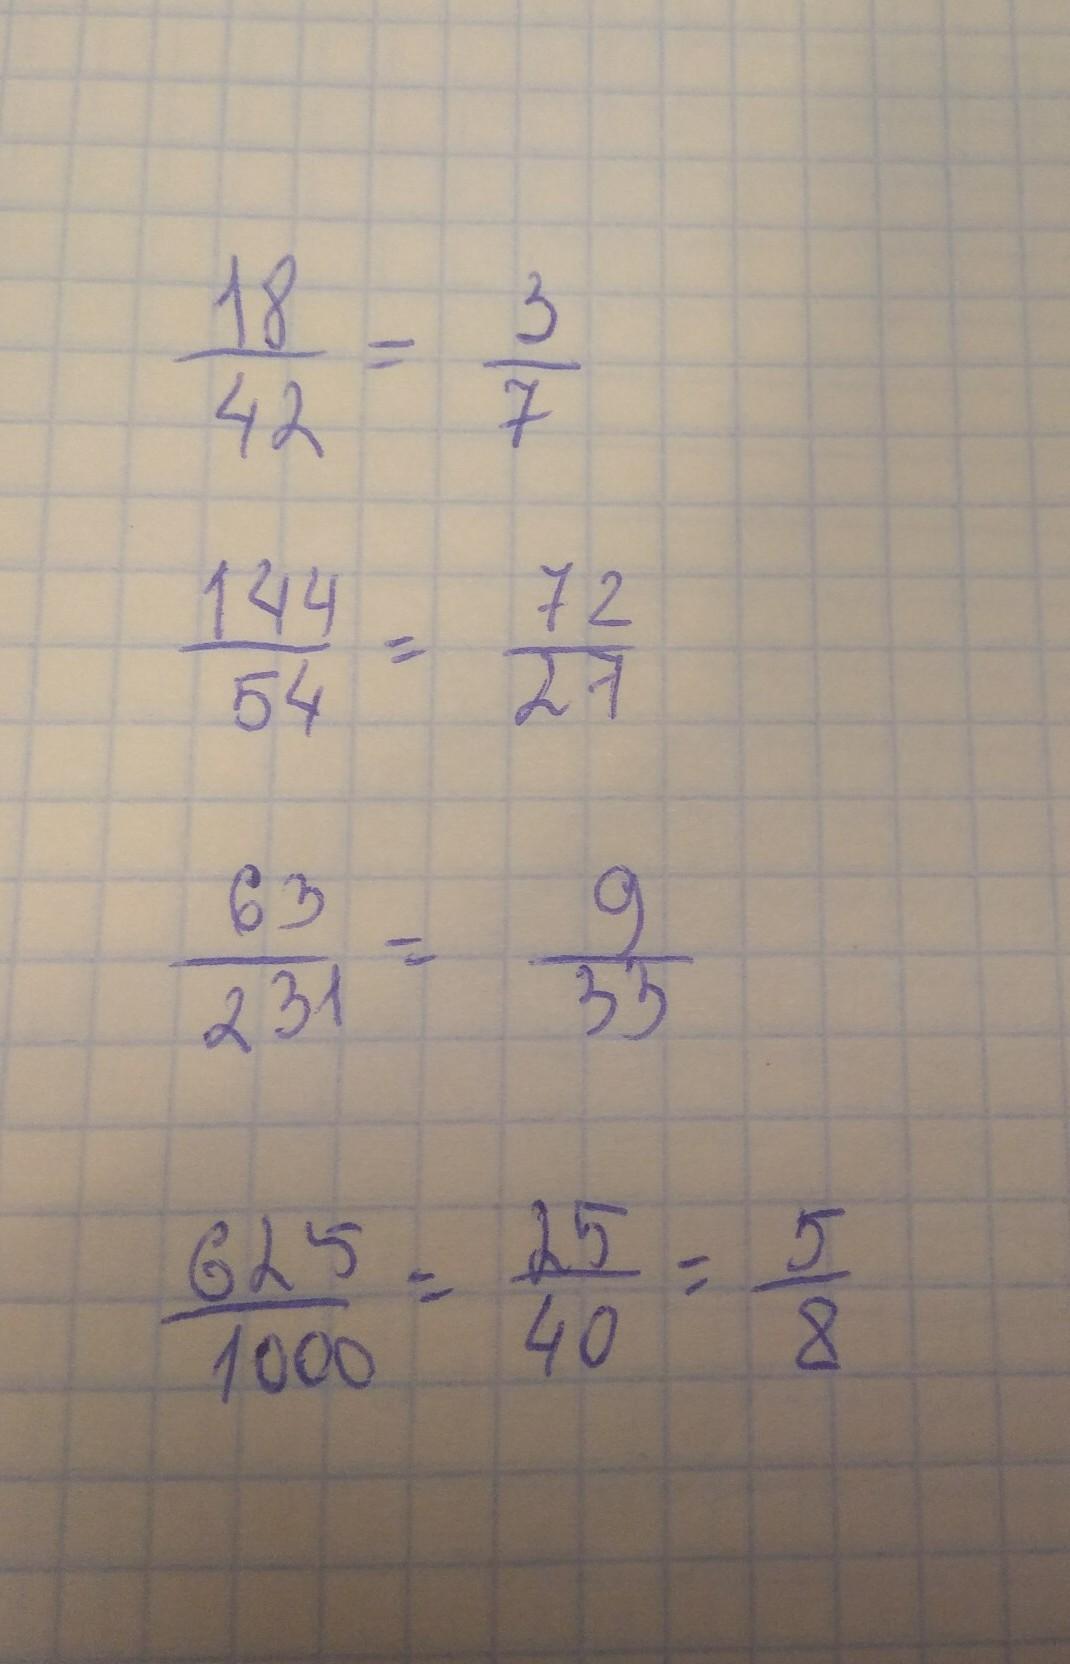 18/42 = 3/7
144/54 = 72/27
63/231 = 9/33
625/1000 = 25/40 = 5/8